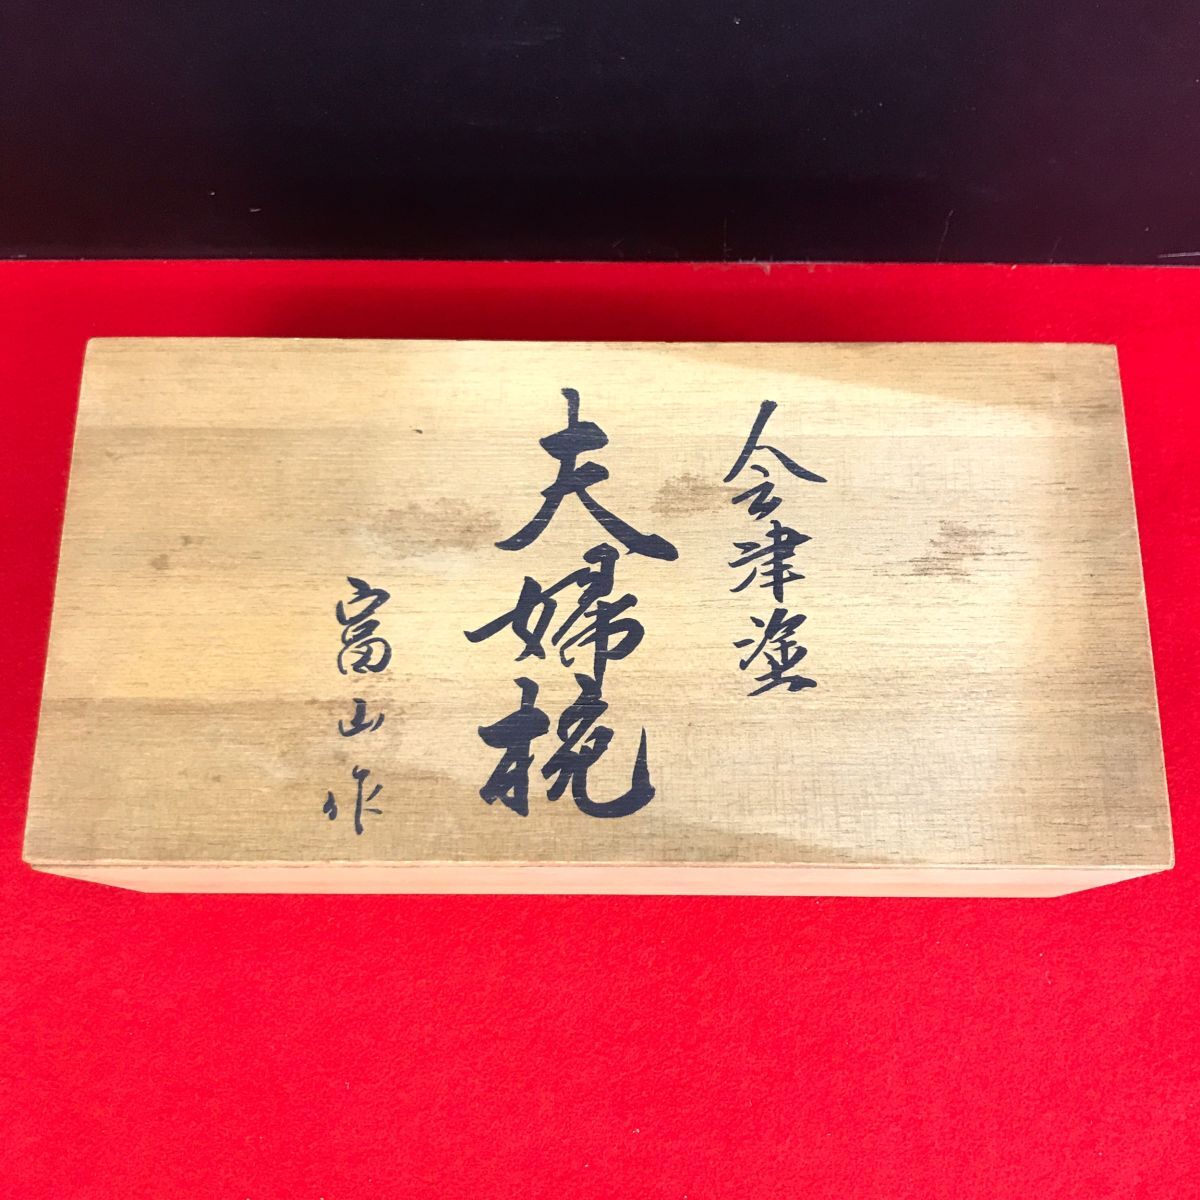 会津塗
夫婦椀
富山作